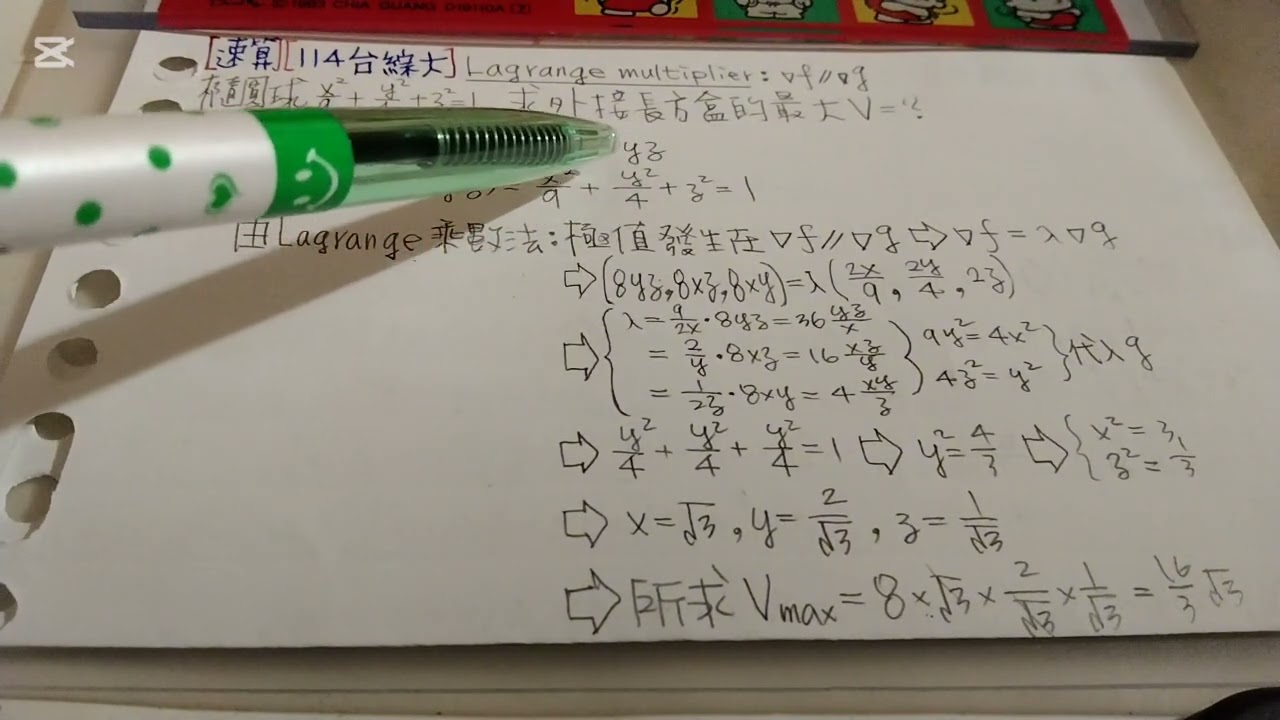 © 1983 CHIA GUANG D19110A [Z]
[速算][114台綜大] Lagrange multiplier: ∇f // ∇g
橢圓球 x²/9 + y²/4 + z² = 1, 求外接長方盒的最大V=?
yz
x²/9 + y²/4 + z² = 1
由Lagrange乘數法:極值發生在 ∇f // ∇g ⇨ ∇f = λ∇g
⇨ (8yz, 8xz, 8xy) = λ(2x/9, 2y/4, 2z)
⇨ { λ = 9/2x · 8yz = 36 yz/x
= 2/y · 8xz = 16 xz/y } 9y² = 4x²
= 1/2z · 8xy = 4 xy/z } 4z² = y² } 代入g
⇨ y²/4 + y²/4 + y²/4 = 1 ⇨ y² = 4/3 ⇨ { x² = 3, z² = 1/3
⇨ x = √3, y = 2/√3, z = 1/√3
⇨ 所求 Vmax = 8 × √3 × 2/√3 × 1/√3 = 16/3 √3